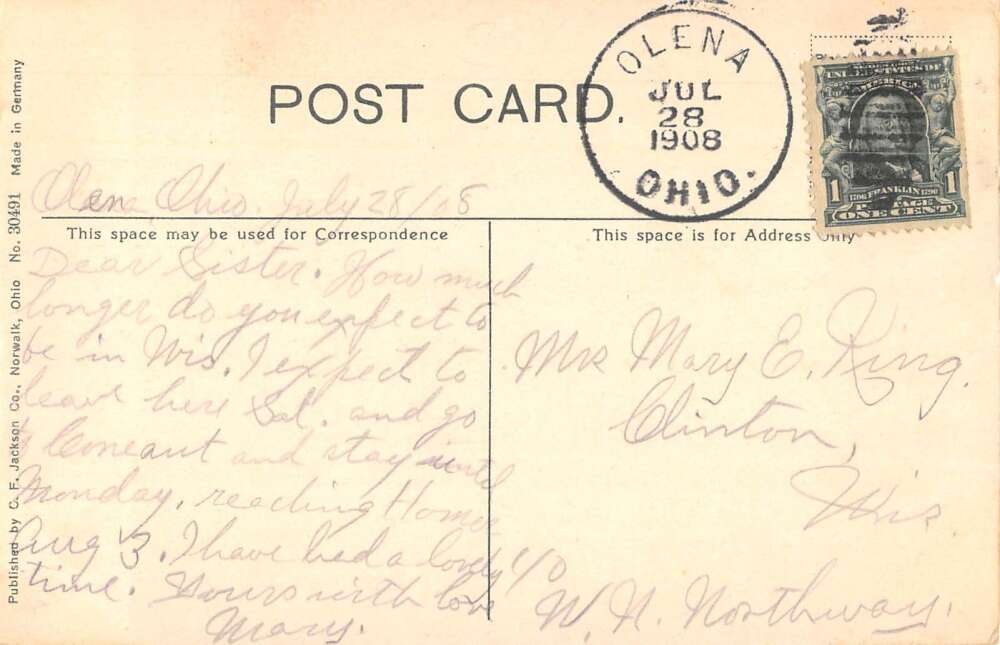 POST CARD.
OLENA
JUL
28
1908
OHIO.
UNITED STATES OF
AMERICA
1 FRANKLIN 1
1706 1790
POSTAGE
ONE CENT
Olena, Ohio. July 28/08
This space may be used for Correspondence
Dear Sister. How much
longer do you expect to
be in Wis. I expect to
leave here Sat. and go
to Coneaut and stay until
Monday, reaching Home
Aug 3. I have had a lovely
time. Yours with love
Mary.
This space is for Address Only
Mrs Mary E. King.
Clinton,
Wis
c/o
W. H. Northway.
Published by C. F. Jackson Co., Norwalk, Ohio No. 30491 Made in Germany